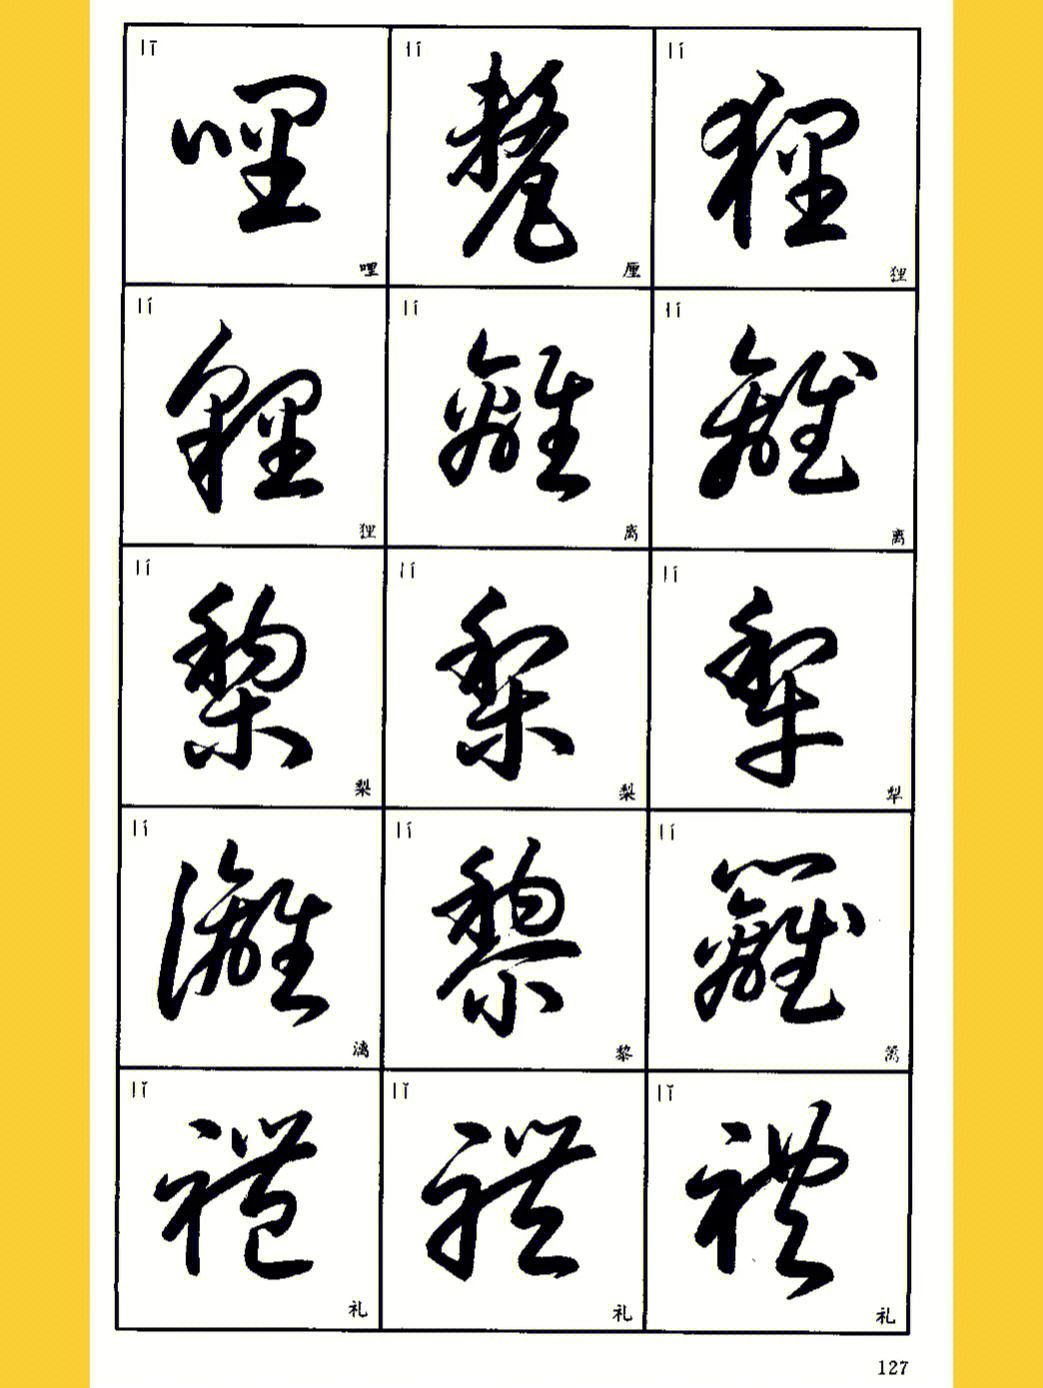 lī 哩 lí 釐 lí 狸
哩 厘 狸
lí 貍 lí 離 lí 離
狸 离 离
lí 棃 lí 梨 lí 犁
梨 梨 犁
lí 灕 lí 黎 lí 籬
漓 黎 篱
lǐ 禮 lǐ 禮 lǐ 禮
礼 礼 礼
127